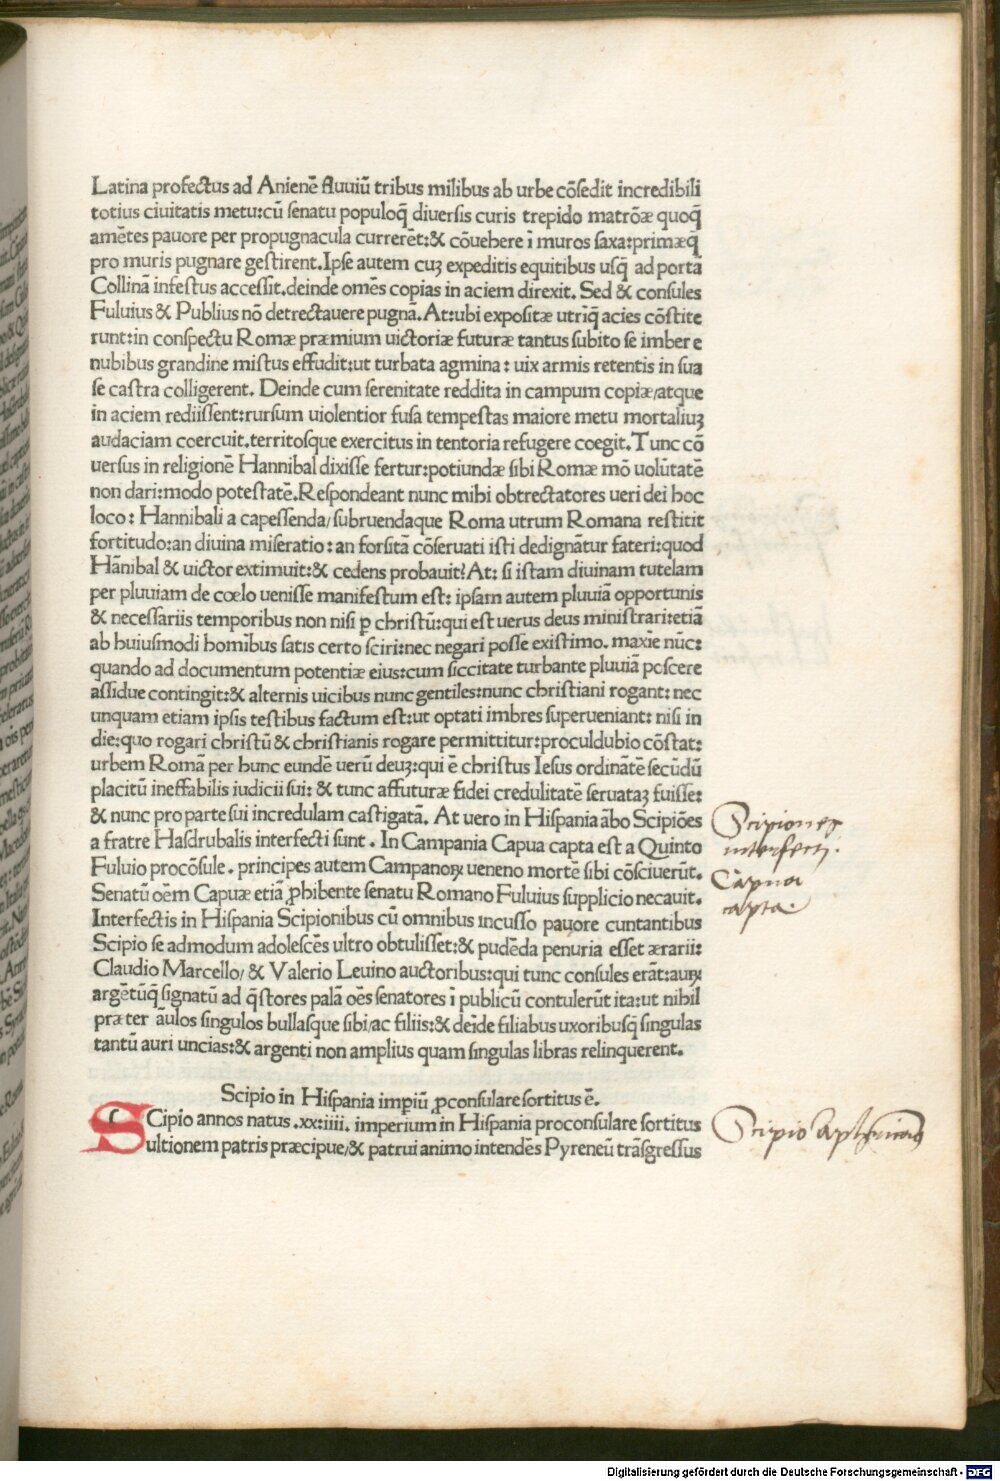 Latina profectus ad Anienē fluuiū tribus milibus ab urbe cōsedit incredibili
totius ciuitatis metu:cū senatu populoq̄ diuersis curis trepido matrōæ quoq̄
amētes pauore per propugnacula currerēt:& cōuehere ī muros saxa:primæq̄
pro muris pugnare gestirent.Ipse autem cuꝫ expeditis equitibus usq̄ ad portā
Collinā infestus accessit.deinde omēs copias in aciem direxit. Sed & consules
Fuluius & Publius nō detrectauere pugnā. At:ubi expositæ utriq̄ acies cōstite
runt:in conspectu Romæ præmium uictoriæ futuræ tantus subito se imber e
nubibus grandine mistus effudit:ut turbata agmina: uix armis retentis in sua
se castra colligerent. Deinde cum serenitate reddita in campum copiæ/atque
in aciem rediissent:rursum uiolentior fusa tempestas maiore metu mortaliuꝫ
audaciam coercuit.territosque exercitus in tentoria refugere coegit.Tunc cō
uersus in religionē Hannibal dixisse fertur:potiundæ sibi Romæ mō uolūtatē
non dari:modo potestatē.Respondeant nunc mihi obtrectatores ueri dei hoc
loco: Hannibali a capessenda/subruendaque Roma utrum Romana restitit
fortitudo:an diuina miseratio:an forsitā cōseruati isti dedignātur fateri:quod
Hānibal & uictor extimuit:& cedens probauit?At: si istam diuinam tutelam
per pluuiam de cœlo uenisse manifestum est: ipsam autem pluuiā opportunis
& necessariis temporibus non nisi ꝑ christū:qui est uerus deus ministrari:etiā
ab huiusmodi homībus satis certo sciri:nec negari posse existimo. maxīe nūc:
quando ad documentum potentiæ eius:cum siccitate turbante pluuiā poscere
assidue contingit:& alternis uicibus nunc gentiles:nunc christiani rogant: nec
unquam etiam ipsis testibus factum est:ut optati imbres superueniant: nisi in
die:quo rogari christū & christianis rogare permittitur:proculdubio cōstat:
urbem Romā per hunc eundē uerū deuꝫ:qui ē christus Iesus ordinātē secūdū
placitū ineffabilis iudicii sui: & tunc affuturæ fidei credulitatē seruataꝫ fuisse:
& nunc pro parte sui incredulam castigatā. At uero in Hispania ābo Scipiōes
a fratre Hasdrubalis interfecti sunt . In Campania Capua capta est a Quinto
Fuluio procōsule . principes autem Campanoꝝ ueneno mortē sibi cōsciuerūt.
Senatū oēm Capuæ etiā ꝓhibente senatu Romano Fuluius supplicio necauit.
Interfectis in Hispania Scipionibus cū omnibus incusso pauore cuntantibus
Scipio se admodum adolescēs ultro obtulisset:& pudēda penuria esset ærarii:
Claudio Marcello/ & Valerio Leuino auctoribus:qui tunc consules erāt:auꝝ
argētūq̄ signatū ad q̄stores palā oēs senatores ī publicū contulerūt ita:ut nihil
præter āulos singulos bullasque sibi/ac filiis:& deīde filiabus uxoribusq̄ singulas
tantū auri uncias:& argenti non amplius quam singulas libras relinquerent.
Scipiones
interfecti.
Capua
capta.
Scipio in Hispania imꝑiū ꝓconsulare sortitus ē.
SCipio annos natus .xx:iiii. imperium in Hispania proconsulare sortitus
ultionem patris præcipue/& patrui animo intendēs Pyreneū trāsgressus
Scipio Aphricanus
Digitalisierung gefördert durch die Deutsche Forschungsgemeinschaft - DFG